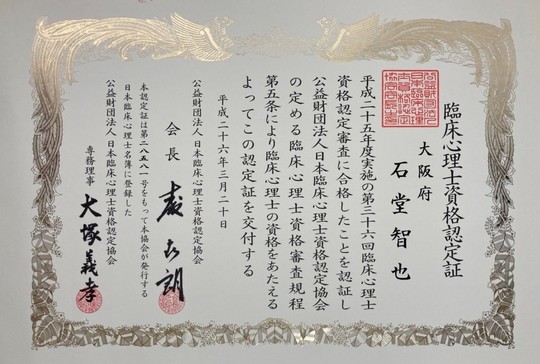 臨床心理士資格認定証
大阪府
石堂智也
平成二十五年度実施の第三十六回臨床心理士
資格認定審査に合格したことを認証し
公益財団法人日本臨床心理士資格認定協会
の定める臨床心理士資格審査規程
第五条により臨床心理士の資格をあたえる
よってこの認定証を交付する
平成二十六年三月二十日
公益財団法人 日本臨床心理士資格認定協会
会長
本認定証は第二八五八一号をもって本協会が発行する
日本臨床心理士名簿に登録した
公益財団法人 日本臨床心理士資格認定協会
専務理事 大塚義孝